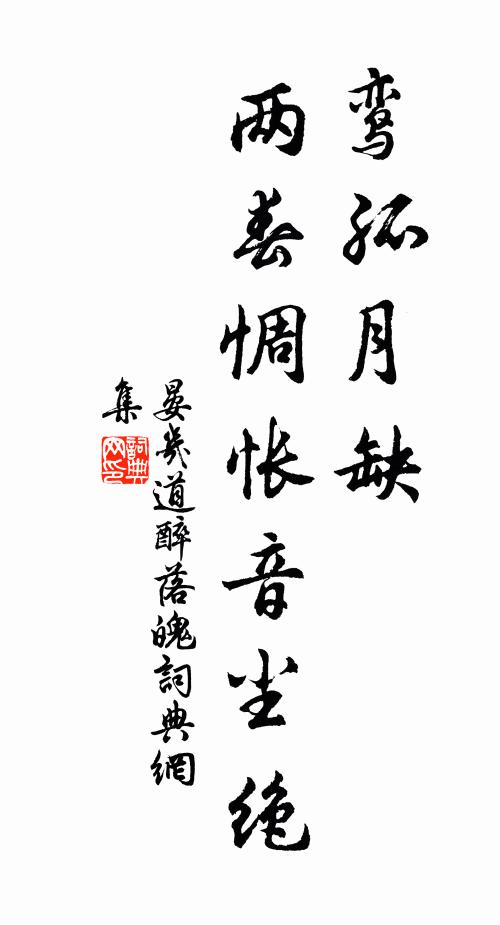 鸾孤月缺
两春惆怅音尘绝
晏幾道醉落魄詞典網
集
詞典网印